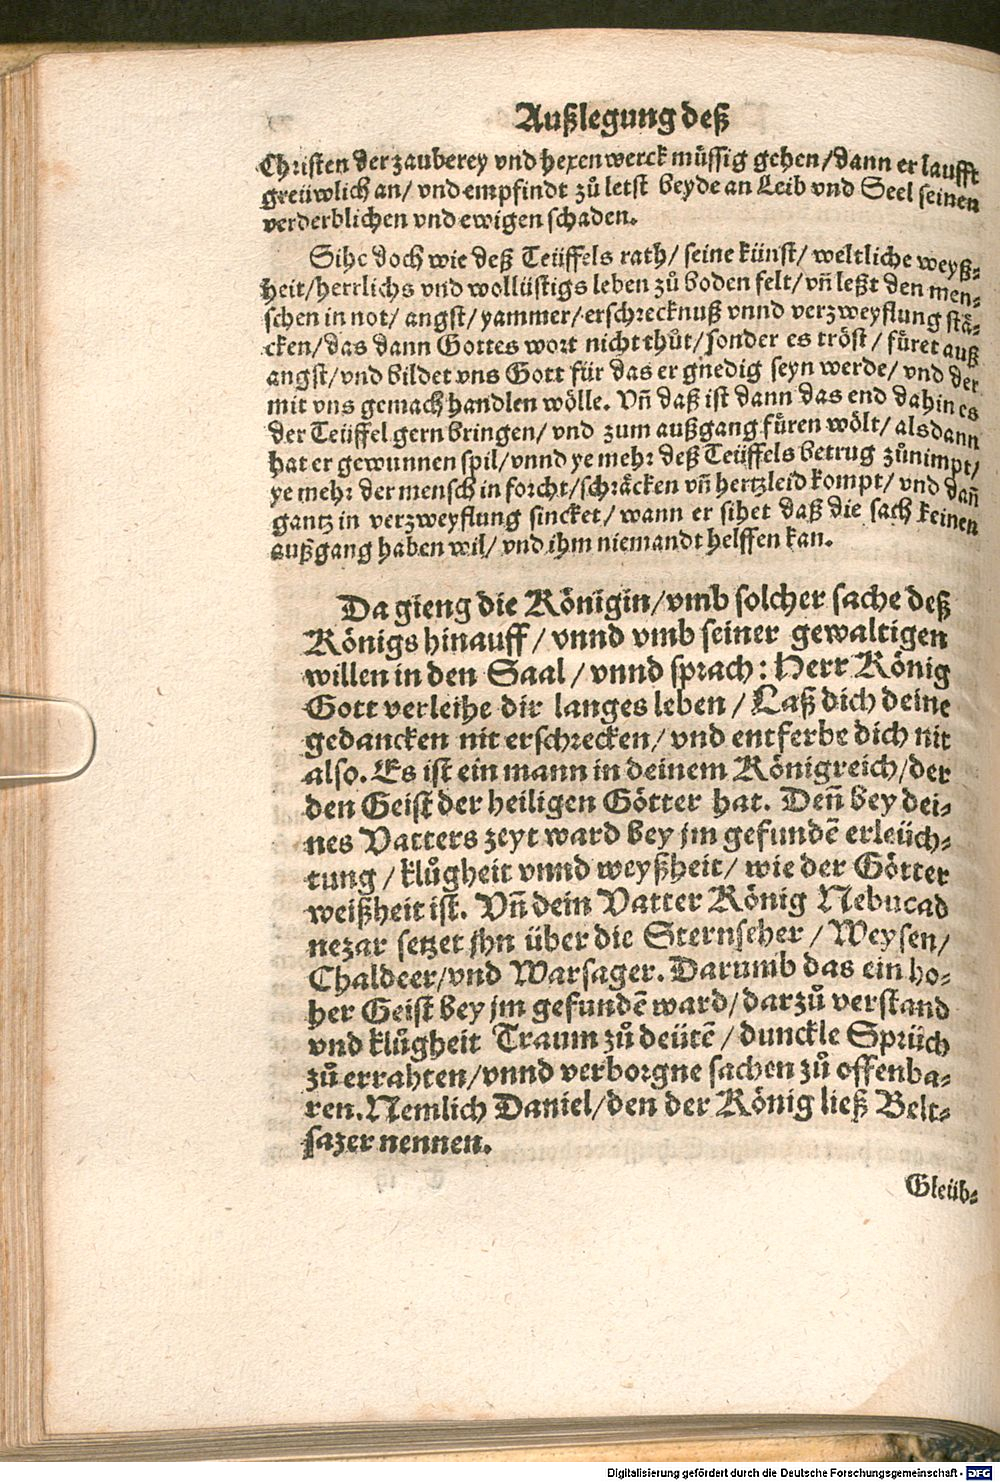 Außlegung deß
Christen der zauberey vnd hexenwerck müssig gehen/ dann er laufft
greüwlich an/ vnd empfindt zů letst beyde an Leib vnd Seel seinen
verderblichen vnd ewigen schaden.
Sihe doch wie deß Teüffels rath/ seine künst/ weltliche weyß⸗
heit/ herrlichs vnd wollüstigs leben zů boden felt/ vñ leßt den men⸗
schen in not/ angst/ yammer/ erschrecknuß vnnd verzweyflung stä⸗
cken/ das dann Gottes wort nicht thůt/ sonder es tröst/ füret auß
angst/ vnd bildet vns Gott für das er gnedig seyn werde/ vnd der
mit vns gemach handlen wölle. Vñ daß ist dann das end dahin es
der Teüffel gern bringen/ vnd zum außgang füren wölt/ alsdann
hat er gewunnen spil/ vnnd ye mehr deß Teüffels betrug zůnimpt/
ye mehr der mensch in forcht/ schräcken vñ hertzleid kompt/ vnd dañ
gantz in verzweyflung sincket/ wann er sihet daß die sach keinen
außgang haben wil/ vnd ihm niemandt helffen kan.
Da gieng die Königin/ vmb solcher sache deß
Königs hinauff/ vnnd vmb seiner gewaltigen
willen in den Saal/ vnnd sprach: Herr König
Gott verleihe dir langes leben/ Laß dich deine
gedancken nit erschrecken/ vnd entferbe dich nit
also. Es ist ein mann in deinem Königreich/ der
den Geist der heiligen Götter hat. Deñ bey dei⸗
nes Vatters zeyt ward bey jm gefundẽ erleüch⸗
tung/ klůgheit vnnd weyßheit/ wie der Götter
weißheit ist. Vñ dein Vatter König Nebucad
nezar setzet jhn über die Sternseher/ Weysen/
Chaldeer/ vnd Warsager. Darumb das ein ho⸗
her Geist bey jm gefundẽ ward/ darzů verstand
vnd klůgheit Traum zů deütẽ/ dunckle Sprüch
zů errahten/ vnnd verborgne sachen zů offenba⸗
ren. Nemlich Daniel/ den der König ließ Belt⸗
sazer nennen.
Gleüb⸗
Digitalisierung gefördert durch die Deutsche Forschungsgemeinschaft - DFG